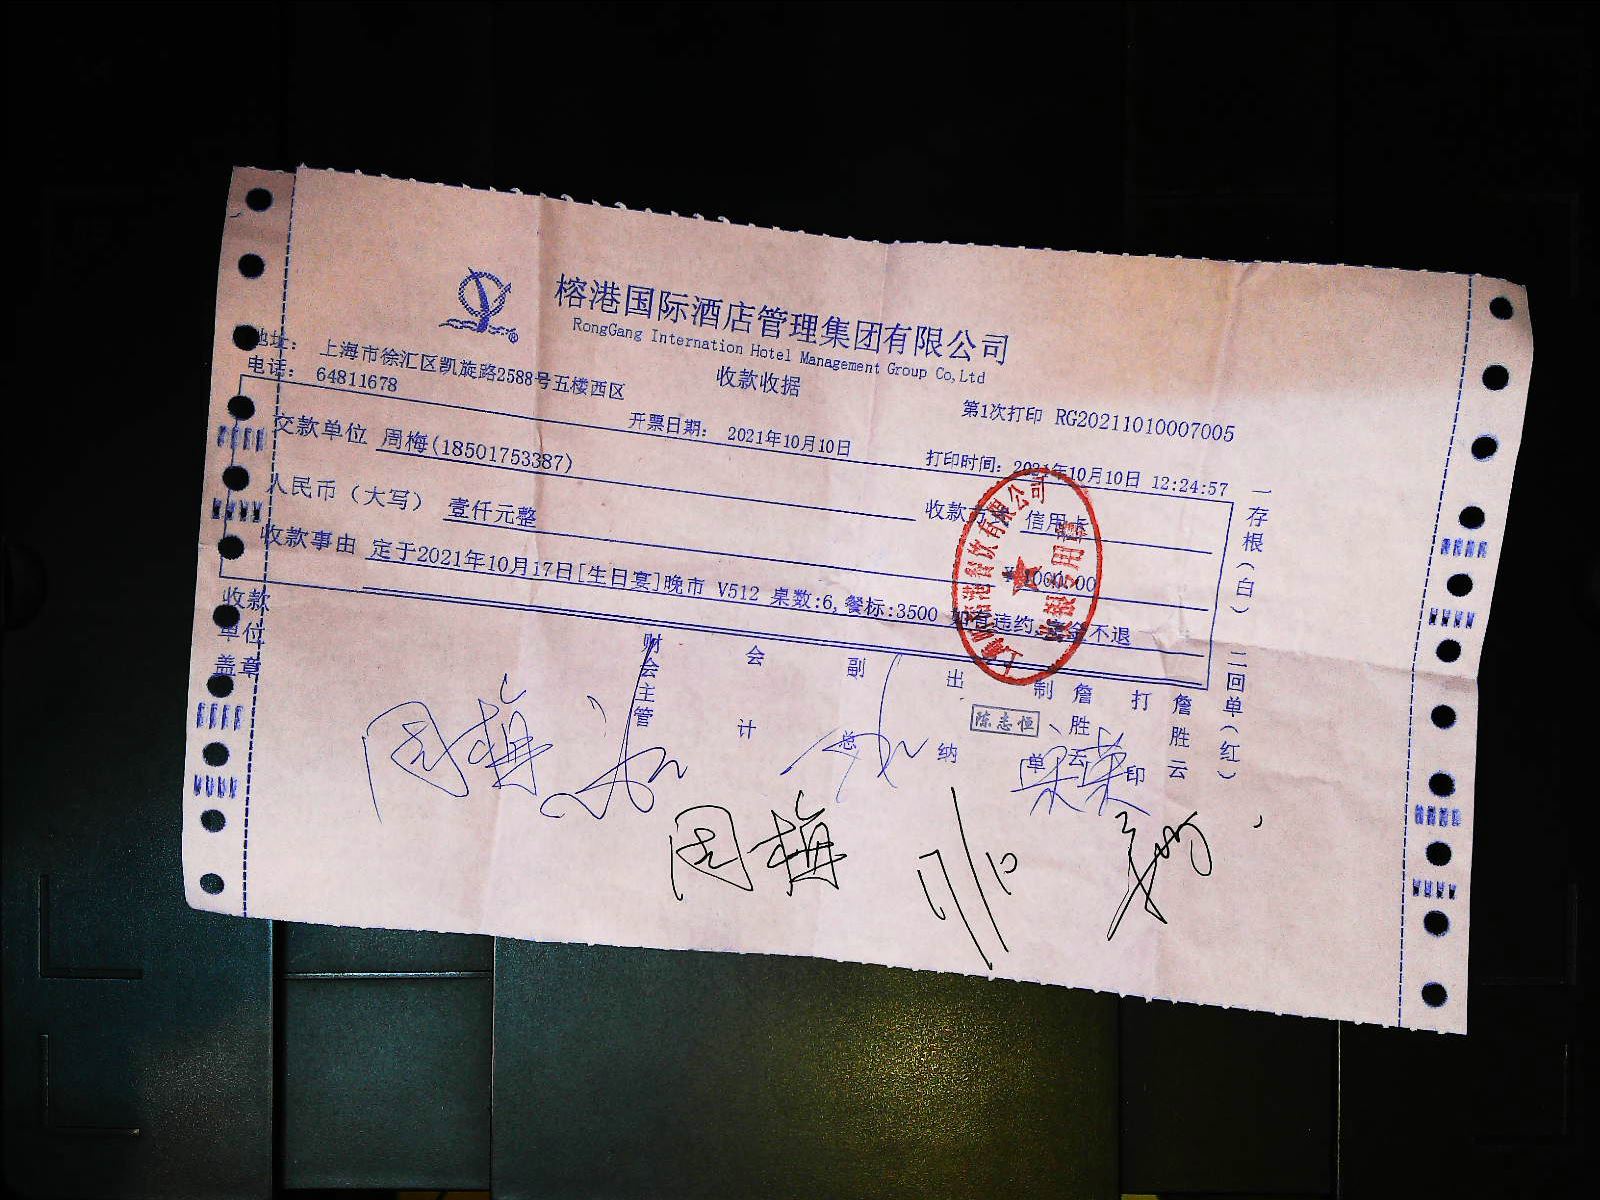 榕港国际酒店管理集团有限公司
RongGang Internation Hotel Management Group Co,Ltd
地址： 上海市徐汇区凯旋路2588号五楼西区
收款收据
电话： 64811678
第1次打印 RG20211010007005
开票日期： 2021年10月10日
打印时间：2021年10月10日 12:24:57
交款单位 周梅(18501753387)
收款方式 信用卡
人民币（大写） 壹仟元整
￥1000.00
收款事由 定于2021年10月17日[生日宴]晚市 V512 桌数:6,餐标:3500 如有违约,定金不退
收款单位盖章
财会主管
会计
副总
出纳
陈志恒
制单
詹胜云
打印
詹胜云
一存根(白)
二回单(红)
周梅
周梅